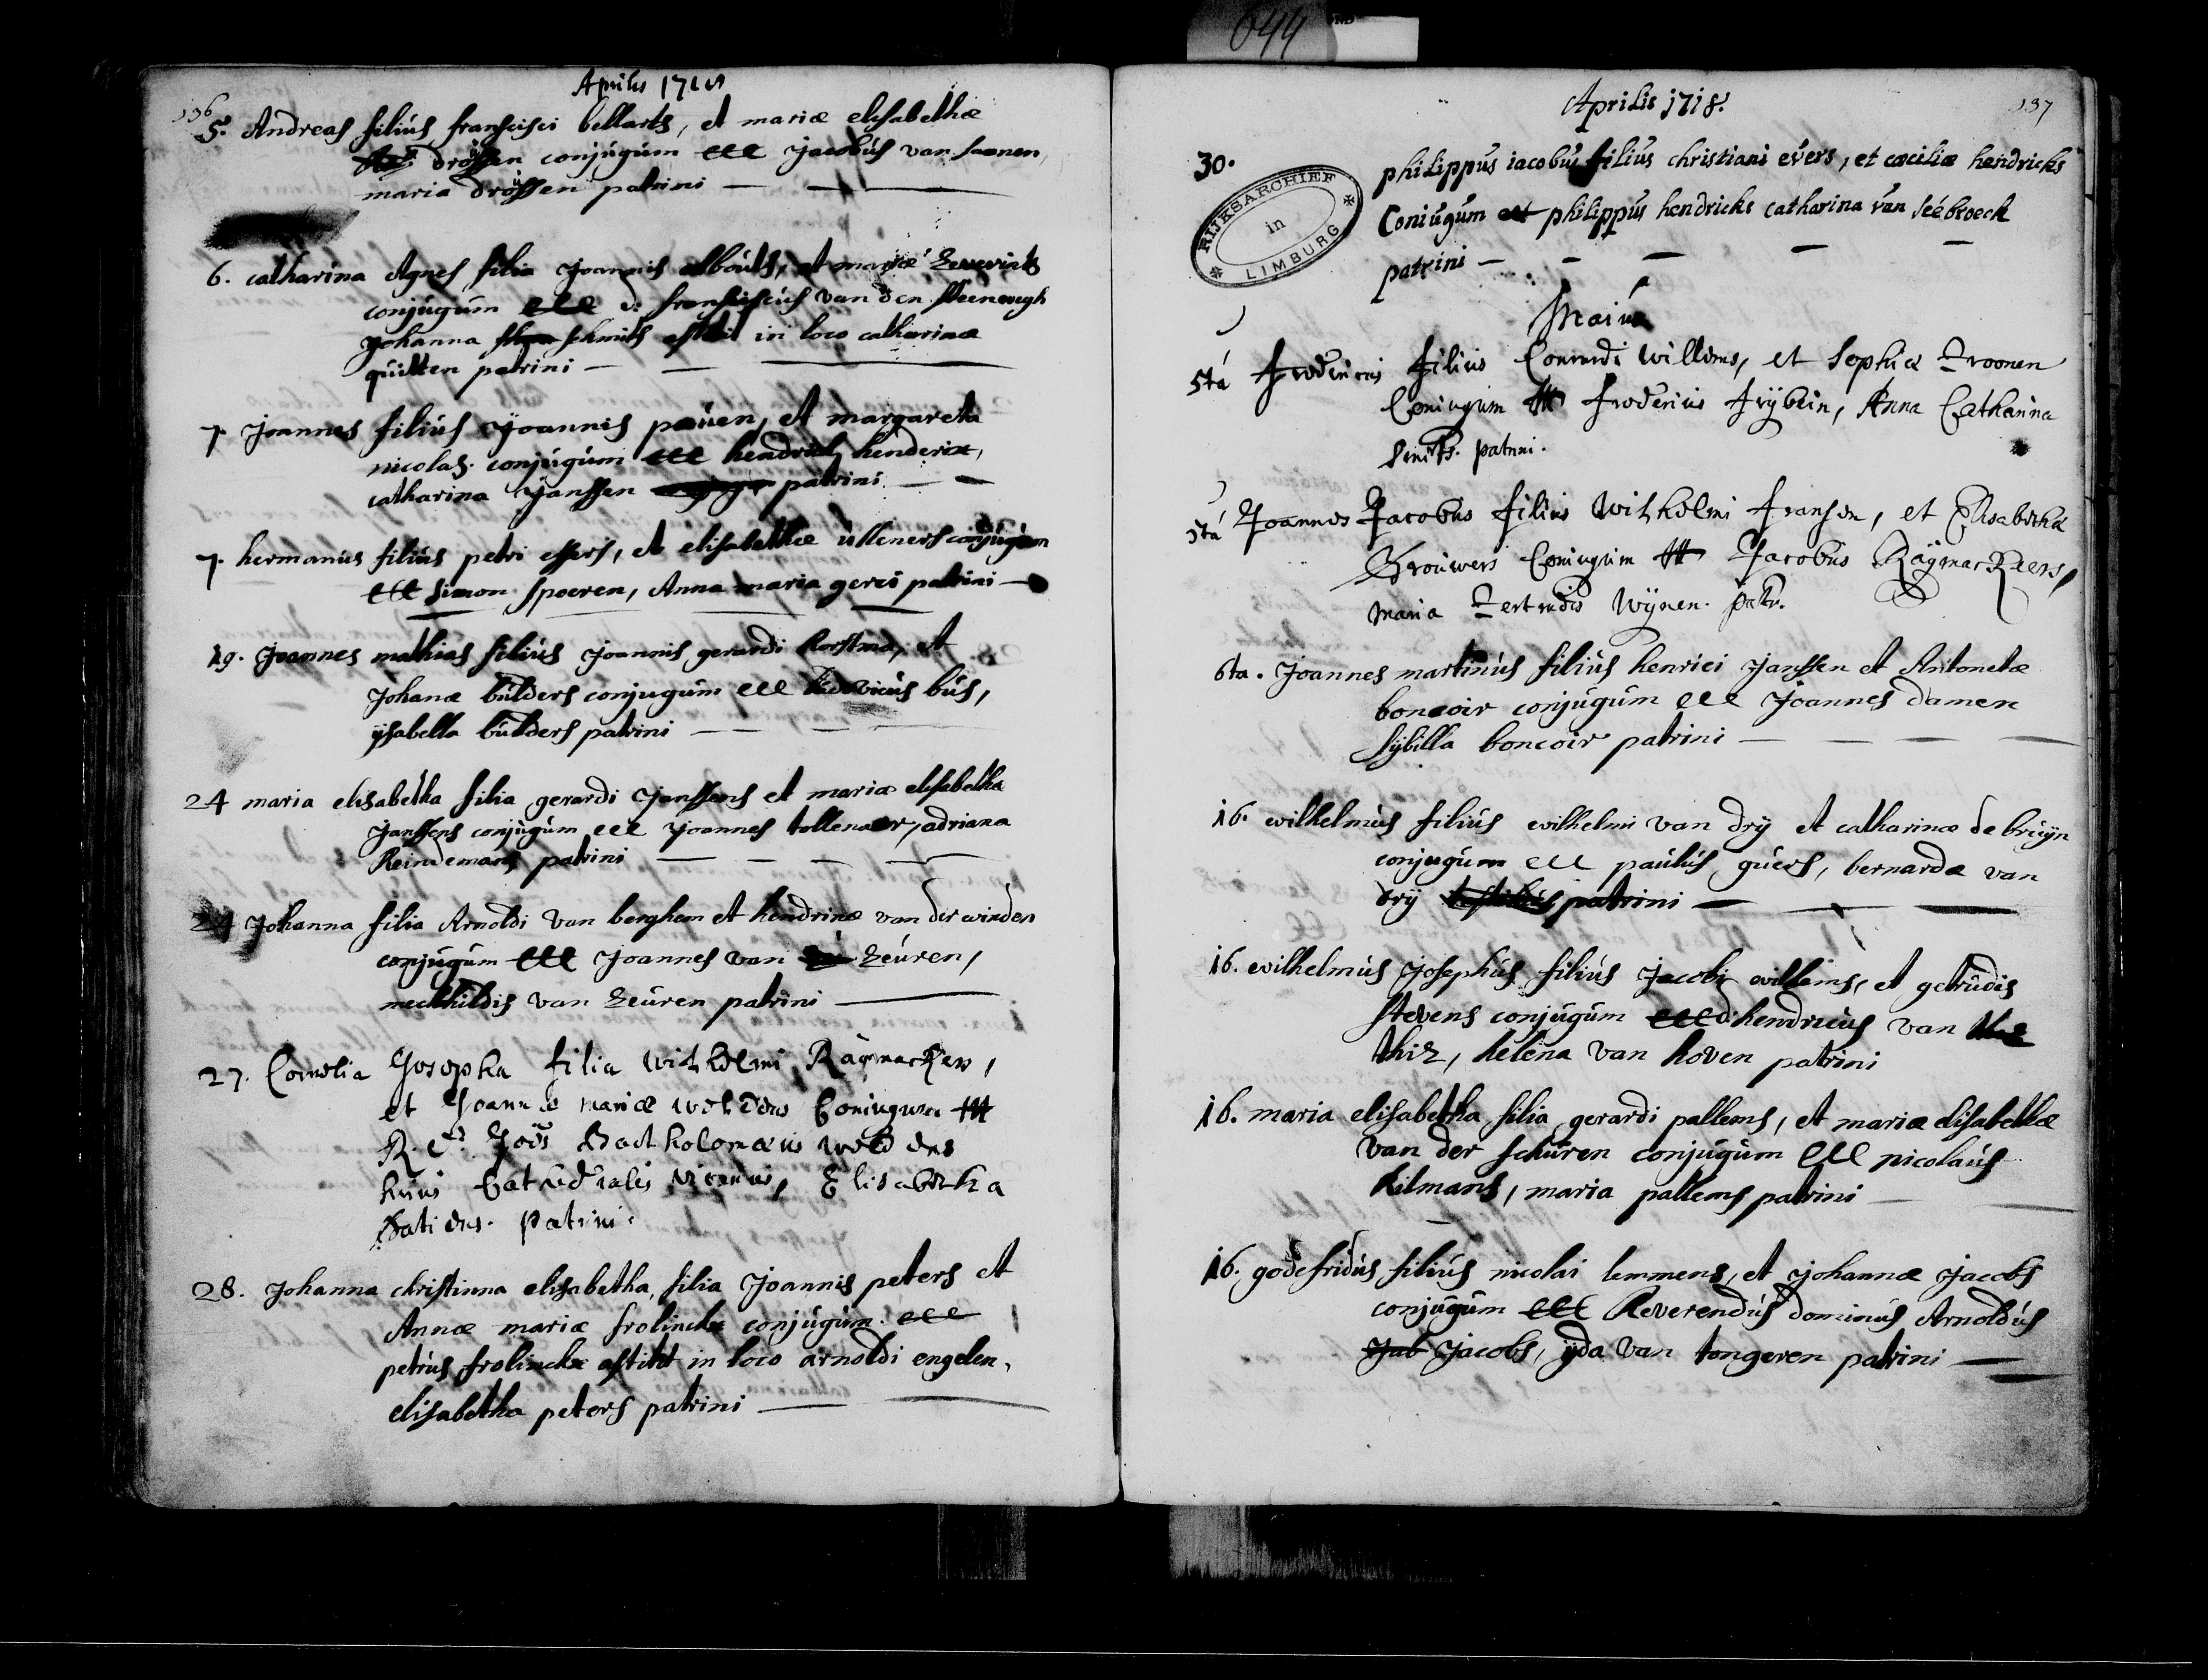 644
Aprilis 1718
136
5. Andreas filius francisci bellarts, et mariæ elisabethæ
drössen conjugum Jacobus van
maria drössen patrini
6. catharina Agnes filia Joannis et mariæ
conjugum d: franciscus van den steenwegh
Johanna schmits astitit in loco catharinæ
quitten patrini
7. Joannes filius Joannis pauen, et margareta
nicolas conjugum hendrick henderix,
catharina Janssen patrini
7. hermanus filius petri essers, et elisabethæ ulleners conjugum
simon spoeren, Anna maria patrini
19. Joannes mathias filius Joannis gerardi et
Johanæ bulders conjugum bus,
ysabella bulders patrini
24 maria elisabetha filia gerardi Janssens et mariæ elisabetha
Janssens conjugum Joannes tollenaer, adriana
Reindemans patrini
24 Johanna filia Arnoldi van berghem et hendrinæ van der winden
conjugum Joannes van zeuren,
mechhildis van zeuren patrini
27. Cornelia Josepha filia Wilhelmi Räymackers,
et Joannæ mariæ Coniugum
R. D. Joës Bartholomæus
huius Cathedralis vicarius, Elisabetha
Patrini.
28. Johanna christinna elisabetha, filia Joannis peters et
Annæ mariæ frolinckx conjugum
petrus frolinckx astitit in loco arnoldi engelen,
elisabetha peters patrini
Aprilis 1718.
137
30. philippus iacobus filius christiani evers, et cæciliæ hendricks
RIJKSARCHIEF in LIMBURG
Coniugum philippus hendricks catharina van seébroeck
patrini
Maius
5ta fredericus filius Conrardi Willems, et Sophiæ Troonen
Coniugum frederius Anna Catharina
patrini.
5ta Joannes Jacobus filius Wilhelmi fransen, et Elisabethæ
Brouwers Coniugum Jacobus Räymackers,
maria gertrudis Wijnen. patr.
6ta. Joannes martinus filius henrici Janssen et Antonetæ
boncoir conjugum Joannes damen
sybilla boncoir patrini
16. wilhelmus filius wilhelmi van dry et catharinæ de bruyn
conjugum paulus guers, bernarda van
dry patrini
16. wilhelmus Josephus filius Jacobi willems, et getrudis
stevens conjugum d: hendricus van
thiz, helena van hoven patrini
16. maria elisabetha filia gerardi pallems, et mariæ elisabethæ
van der schuren conjugum nicolaus
kilmans, maria pallems patrini
16. godefridus filius nicolai lemmens, et Johannæ Jacobs
conjugum Reverendus dominus Arnoldus
Jab Jacobs, yda van tongeren patrini